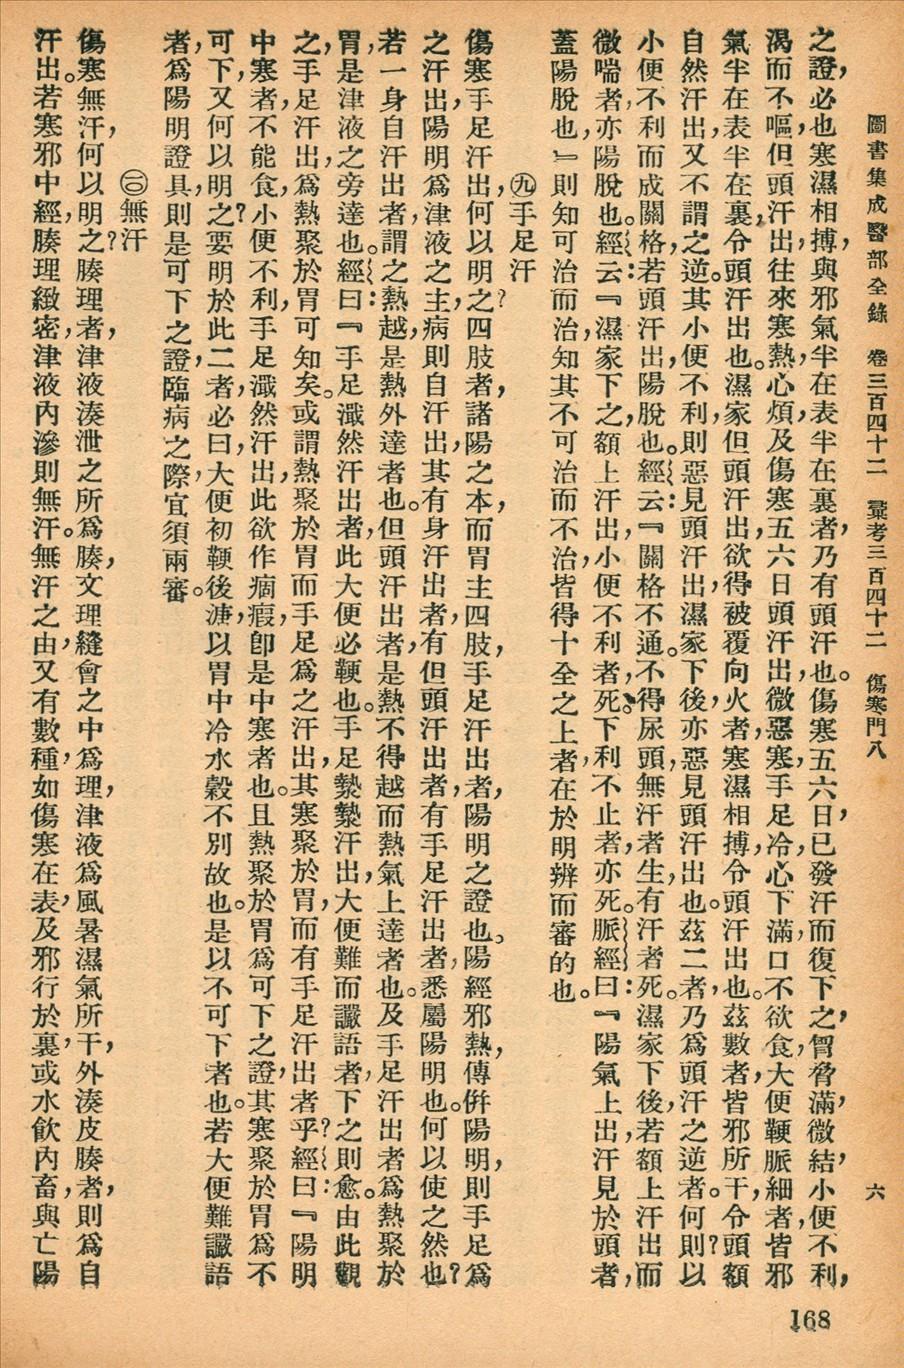 圖書集成醫部全錄　卷三百四十二　彙考三百四十二　傷寒門八　六
之證，必也寒濕相搏，與邪氣半在表半在裏者，乃有頭汗也。傷寒五六日，已發汗而復下之，胷脅滿，微結，小便不利，
渴而不嘔，但頭汗出，往來寒熱，心煩，及傷寒五六日頭汗出，微惡寒，手足冷，心下滿，口不欲食，大便鞕，脈細者，皆邪
氣半在表半在裏，令頭汗出也。濕家但頭汗出，欲得被覆向火者，寒濕相搏，令頭汗出也。茲數者，皆邪所干，令頭額
自然汗出，又不謂之逆。其小便不利，則惡見頭汗出，濕家下後，亦惡見頭汗出也。茲二者，乃爲頭汗之逆者。何則？以
小便不利而成關格，若頭汗出，陽脫也。經云：『關格不通。不得尿頭無汗者生，有汗者死。濕家下後，若額上汗出而
微喘者，亦陽脫也。經云：『濕家下之，額上汗出，小便不利者，死。下利不止者，亦死。脈經曰：『陽氣上出，汗見於頭者，
蓋陽脫也，』則知可治而治，知其不可治而不治，皆得十全之上者，在於明辨而審的也。
㊈手足汗
傷寒手足汗出，何以明之？四肢者，諸陽之本，而胃主四肢，手足汗出者，陽明之證也。陽經邪熱，傳併陽明，則手足爲
之汗出，陽明爲津液之主，病則自汗出，其有身汗出者，有但頭汗出者，有手足汗出者，悉屬陽明也。何以使之然也？
若一身自汗出者，謂之熱越，是熱外達者也。但頭汗出者，是熱不得越而熱氣上達者也。及手足汗出者，爲熱聚於
胃，是津液之旁達也。經曰：『手足濈然汗出者，此大便必鞕也。手足漐漐汗出，大便難而讝語者，下之則愈。由此觀
之，手足汗出，爲熱聚於胃可知矣。或謂熱聚於胃而手足爲之汗出，其寒聚於胃，而有手足汗出者乎？經曰：『陽明
中寒者，不能食，小便不利，手足濈然汗出，此欲作痼瘕，卽是中寒者也。且熱聚於胃爲可下之證，其寒聚於胃爲不
可下，又何以明之？要明於此二者，必曰，大便初鞕後溏，以胃中冷水穀不別故也。是以不可下者也。若大便難讝語
者，爲陽明證具，則是可下之證，臨病之際，宜須兩審。
㊉無汗
傷寒無汗，何以明之？腠理者，津液湊泄之所爲腠，文理縫會之中爲理，津液爲風暑濕氣所干，外湊皮腠者，則爲自
汗出。若寒邪中經，腠理緻密，津液內滲則無汗。無汗之由，又有數種，如傷寒在表，及邪行於裏，或水飲內畜，與亡陽
168